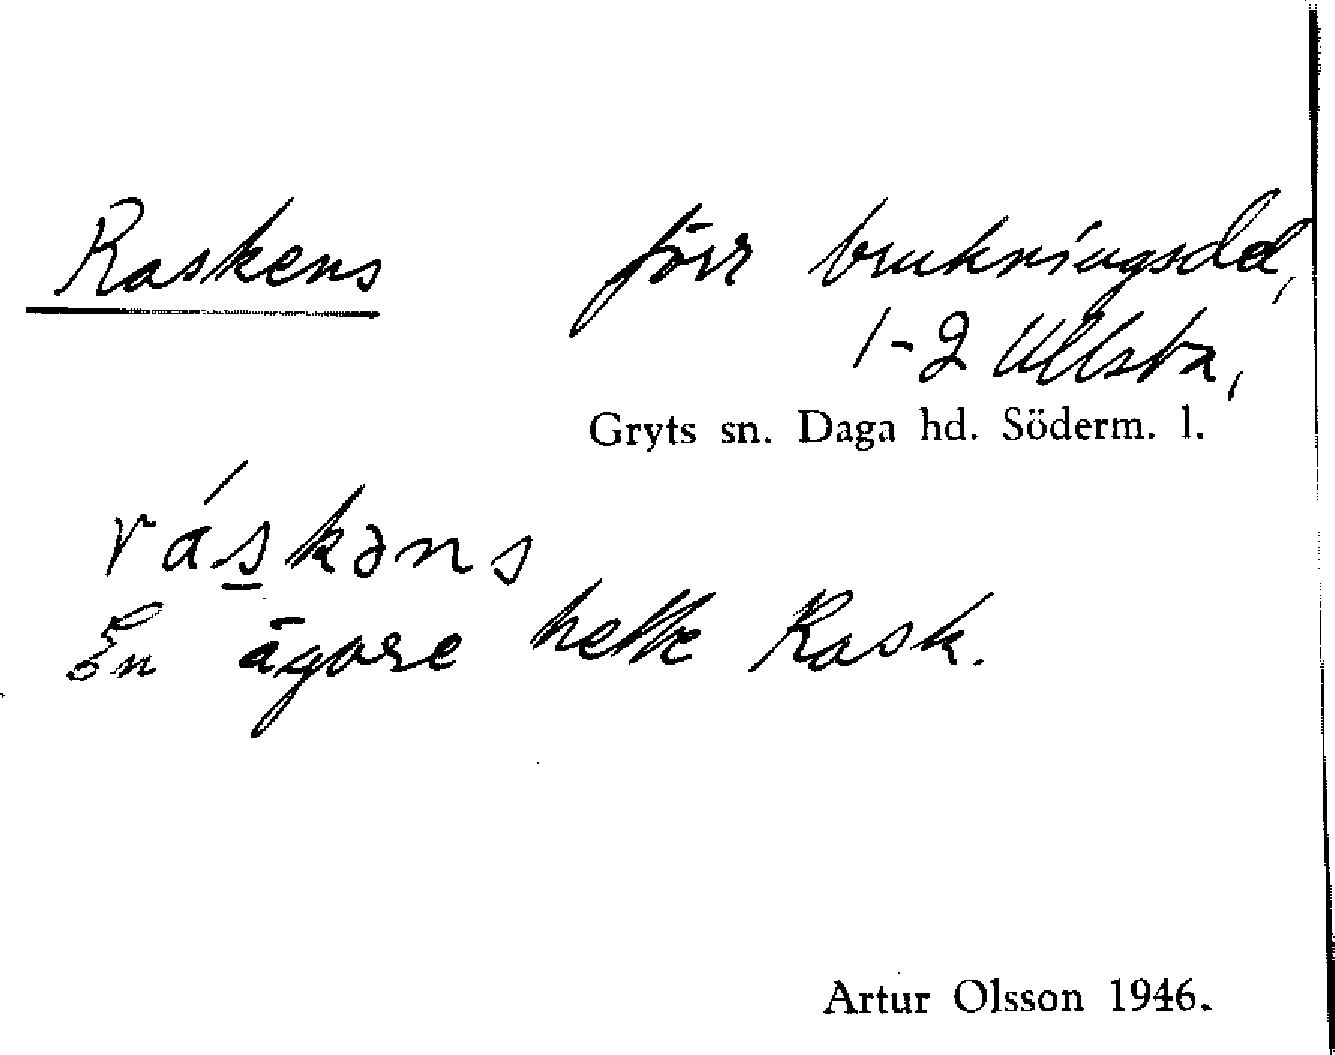 Raskens förr brukningsdel,
1-2 Ullsta,
Gryts sn. Daga hd. Söderm. l.
ráskəns
En ägare hette Rask.
Artur Olsson 1946.